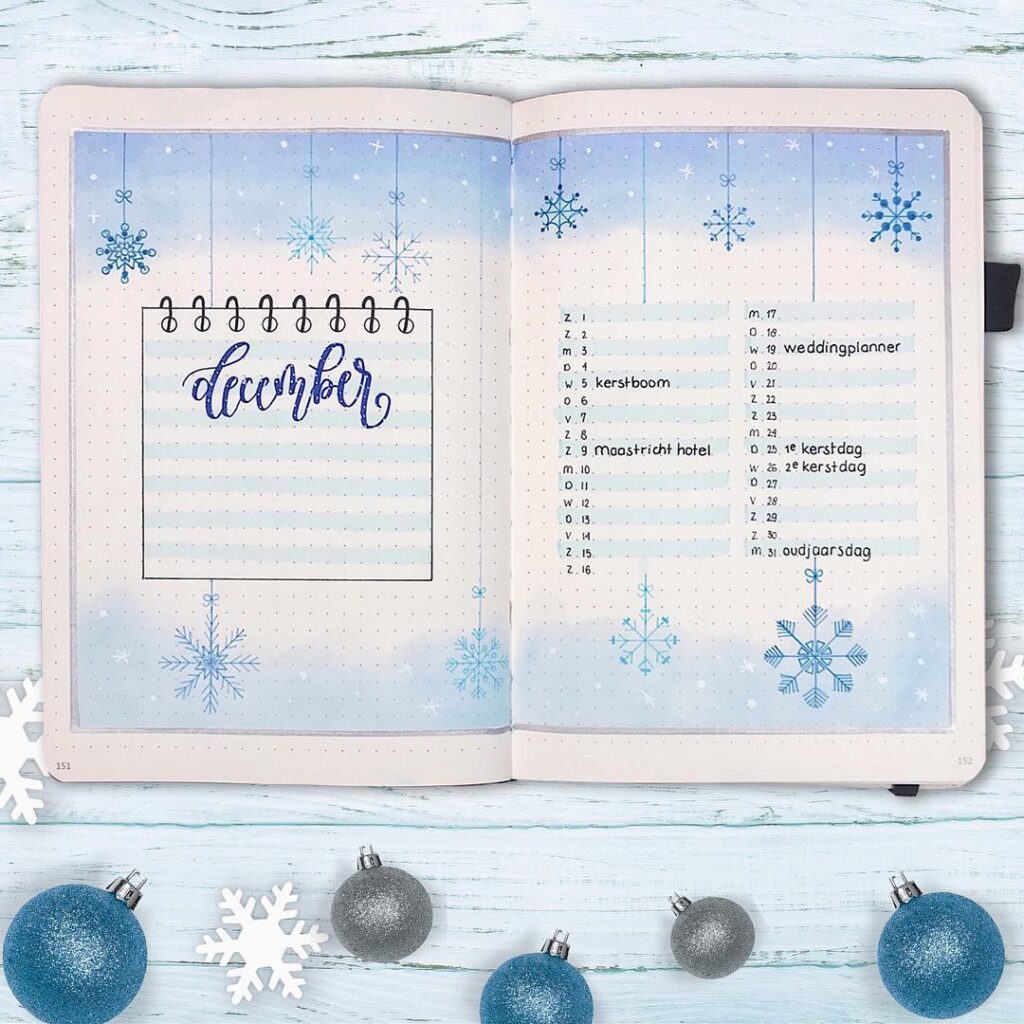 december
z. 1
z. 2
m. 3
D. 4
W. 5 kerstboom
D. 6
V. 7
Z. 8
Z. 9 maastricht hotel
m. 10
D. 11
W. 12
D. 13
V. 14
Z. 15
Z. 16
m. 17
D. 18
W. 19 weddingplanner
D. 20
V. 21
Z. 22
Z. 23
m. 24
D. 25 1e kerstdag
W. 26 2e kerstdag
D. 27
V. 28
Z. 29
Z. 30
m. 31 oudjaarsdag
151
152